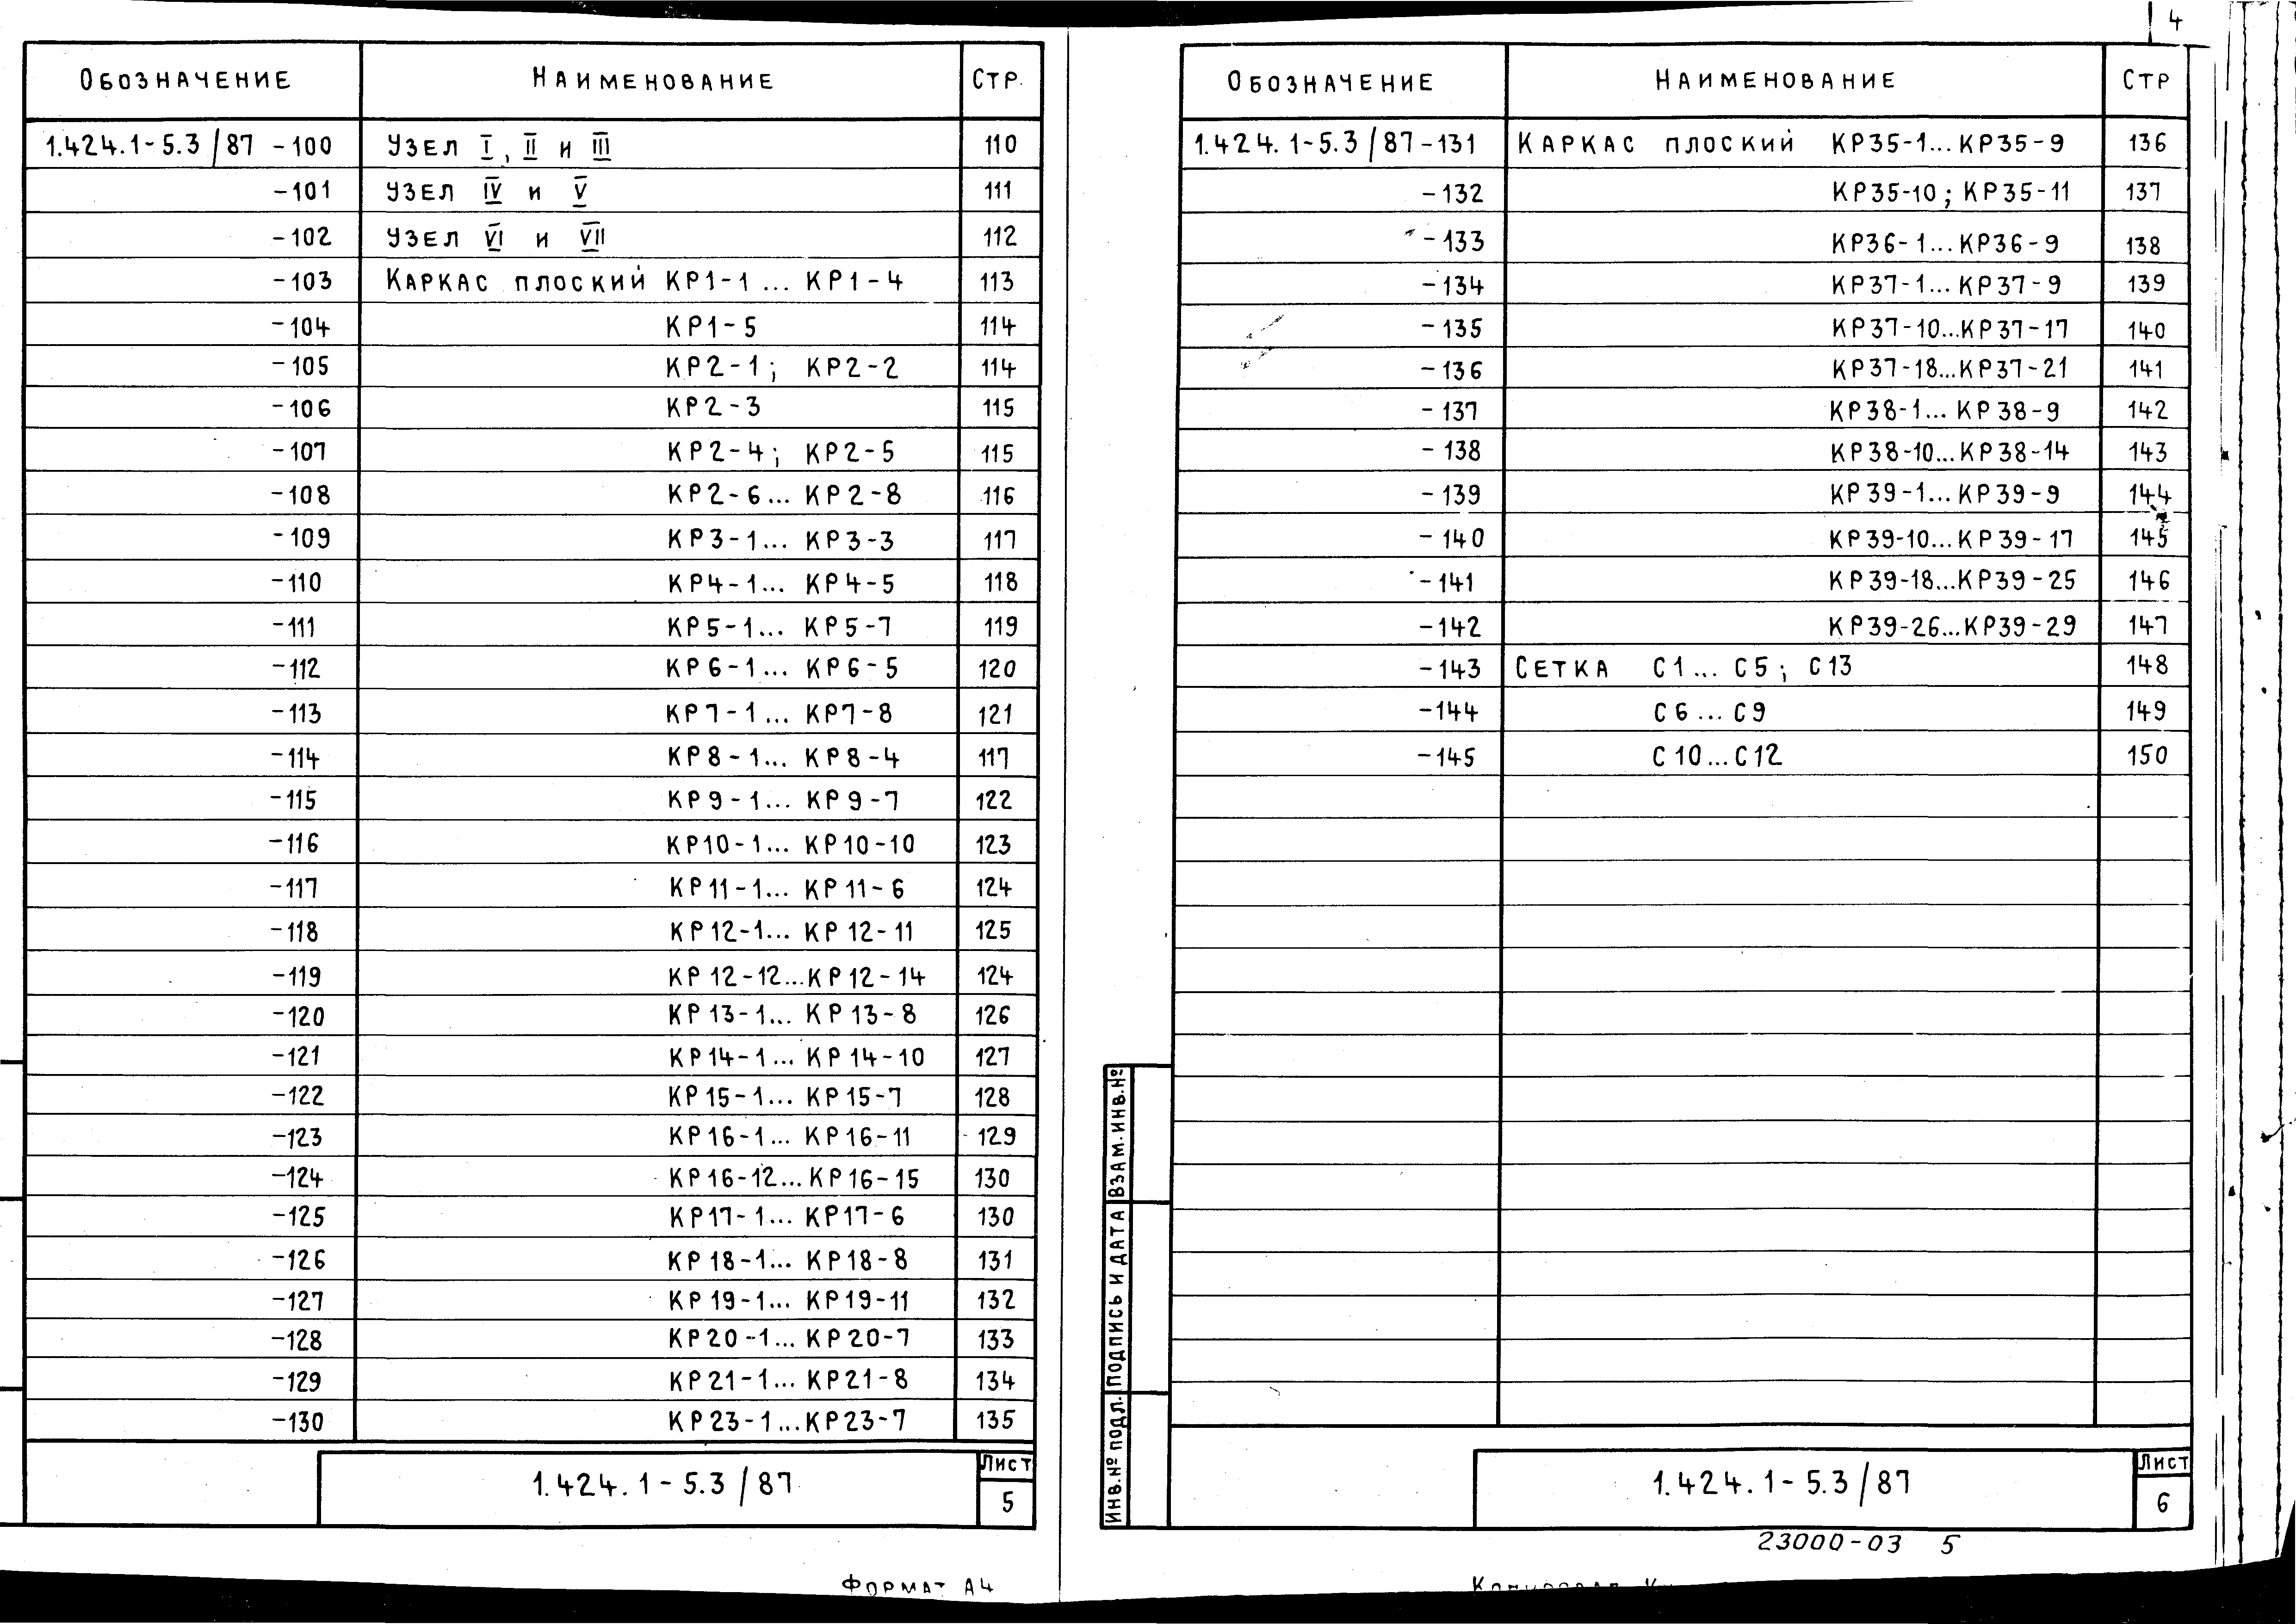 4
Обозначение Наименование Стр.
1.424.1-5.3/87 -100 Узел I, II и III 110
-101 Узел IV и V 111
-102 Узел VI и VII 112
-103 Каркас плоский КР1-1 ... КР1-4 113
-104 КР1-5 114
-105 КР2-1; КР2-2 114
-106 КР2-3 115
-107 КР2-4; КР2-5 115
-108 КР2-6... КР2-8 116
-109 КР3-1... КР3-3 117
-110 КР4-1... КР4-5 118
-111 КР5-1... КР5-7 119
-112 КР6-1... КР6-5 120
-113 КР7-1... КР7-8 121
-114 КР8-1... КР8-4 117
-115 КР9-1... КР9-7 122
-116 КР10-1... КР10-10 123
-117 КР11-1... КР11-6 124
-118 КР12-1... КР12-11 125
-119 КР12-12...КР12-14 124
-120 КР13-1... КР13-8 126
-121 КР14-1... КР14-10 127
-122 КР15-1... КР15-7 128
-123 КР16-1... КР16-11 129
-124 КР16-12...КР16-15 130
-125 КР17-1... КР17-6 130
-126 КР18-1... КР18-8 131
-127 КР19-1... КР19-11 132
-128 КР20-1... КР20-7 133
-129 КР21-1... КР21-8 134
-130 КР23-1...КР23-7 135
1.424.1-5.3/87
Лист
5
Формат А4
Обозначение Наименование Стр
1.424.1-5.3/87-131 Каркас плоский КР35-1...КР35-9 136
-132 КР35-10; КР35-11 137
-133 КР36-1...КР36-9 138
-134 КР37-1...КР37-9 139
-135 КР37-10...КР37-17 140
-136 КР37-18...КР37-21 141
-137 КР38-1...КР38-9 142
-138 КР38-10...КР38-14 143
-139 КР39-1...КР39-9 144
-140 КР39-10...КР39-17 145
-141 КР39-18...КР39-25 146
-142 КР39-26...КР39-29 147
-143 Сетка С1... С5; С13 148
-144 С6...С9 149
-145 С10...С12 150
Взам.инв.№
Подпись и дата
Инв.№ подл.
1.424.1-5.3/87
Лист
6
23000-03 5